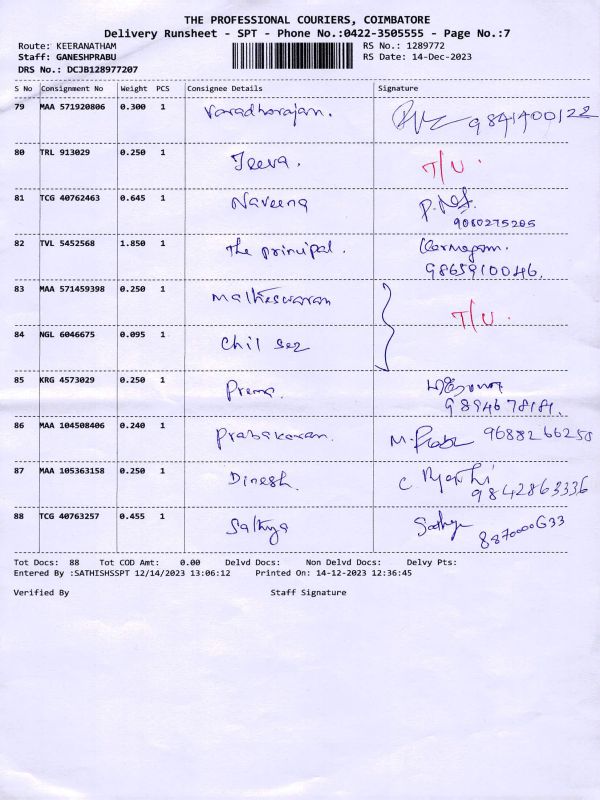 THE PROFESSIONAL COURIERS, COIMBATORE
Delivery Runsheet - SPT - Phone No.:0422-3505555 - Page No.:7
Route: KEERANATHAM RS No.: 1289772
Staff: GANESHPRABU RS Date: 14-Dec-2023
DRS No.: DCJB128977207
S No Consignment No Weight PCS Consignee Details Signature
79 MAA 571920806 0.300 1 Varadharajan. 9841400122
80 TRL 913029 0.250 1 Jeeva. T/U.
81 TCG 40762463 0.645 1 Naveena
9080275205
82 TVL 5452568 1.850 1 The principal.
9865910046.
83 MAA 571459398 0.250 1 Matheswaran
T/U.
84 NGL 6046675 0.095 1 Chil sez
85 KRG 4573029 0.250 1 Prema
9894678181.
86 MAA 104508406 0.240 1 Prabakaran. M. Prabe 9688266250
87 MAA 105363158 0.250 1 Dinesh.
9842863336
88 TCG 40763257 0.455 1 Sathya Sathya
8870000633
Tot Docs: 88 Tot COD Amt: 0.00 Delvd Docs: Non Delvd Docs: Delvy Pts:
Entered By :SATHISHSSPT 12/14/2023 13:06:12 Printed On: 14-12-2023 12:36:45
Verified By Staff Signature